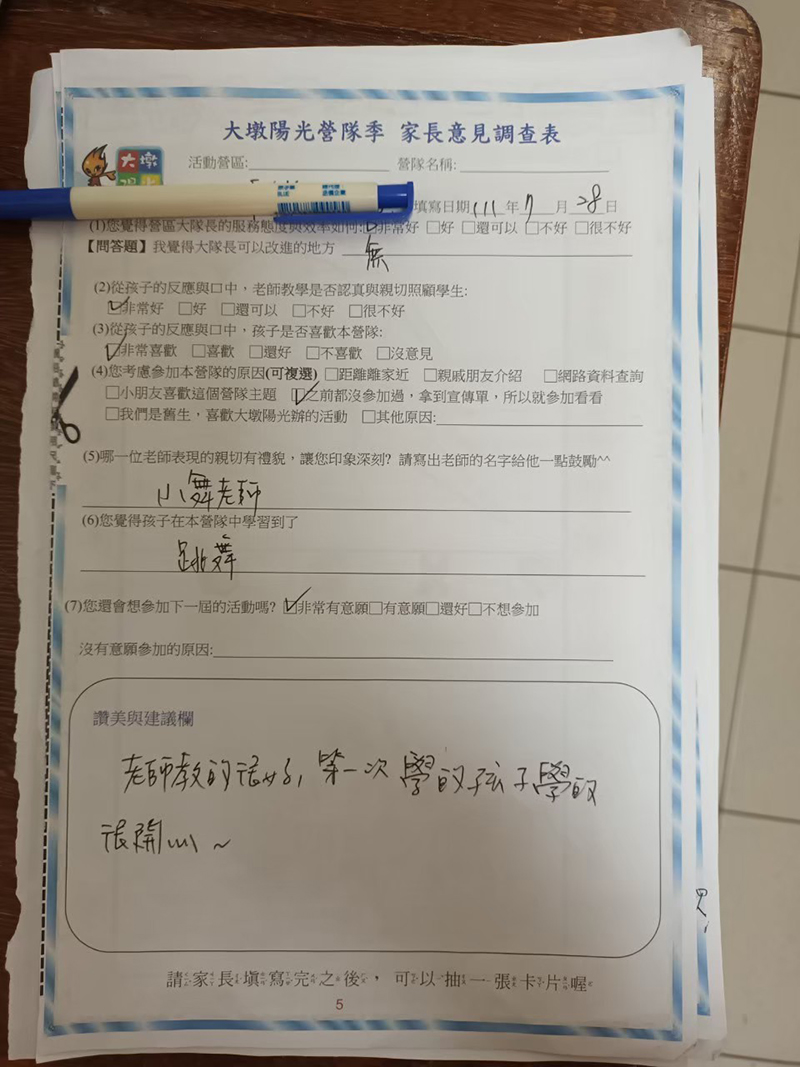 大墩陽光營隊季 家長意見調查表
大墩
活動營區: 營隊名稱:
填寫日期 111 年 7 月 28 日
(1)您覺得營區大隊長的服務態度與效率如何: ☑非常好 □好 □還可以 □不好 □很不好
【問答題】我覺得大隊長可以改進的地方 無
(2)從孩子的反應與口中,老師教學是否認真與親切照顧學生:
☑非常好 □好 □還可以 □不好 □很不好
(3)從孩子的反應與口中,孩子是否喜歡本營隊:
☑非常喜歡 □喜歡 □還好 □不喜歡 □沒意見
(4)您考慮參加本營隊的原因(可複選) □距離離家近 □親戚朋友介紹 □網路資料查詢
□小朋友喜歡這個營隊主題 ☑之前都沒參加過,拿到宣傳單,所以就參加看看
□我們是舊生,喜歡大墩陽光辦的活動 □其他原因:
(5)哪一位老師表現的親切有禮貌,讓您印象深刻? 請寫出老師的名字給他一點鼓勵^^
小舞老師
(6)您覺得孩子在本營隊中學習到了
跳舞
(7)您還會想參加下一屆的活動嗎? ☑非常有意願□有意願□還好□不想參加
沒有意願參加的原因:
讚美與建議欄
老師教的很好, 第一次學的孩子學的
很開心~
請家長填寫完之後,可以抽一張卡片喔
5